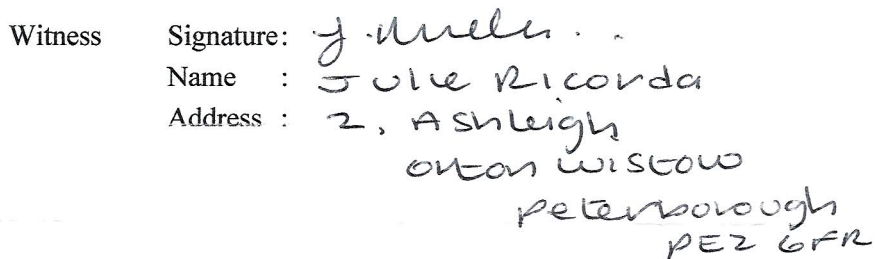 Witness Signature:
Name : Julie Ricorda
Address : 2, Ashleigh
Orton Wistow
Peterborough
PE2 6FR